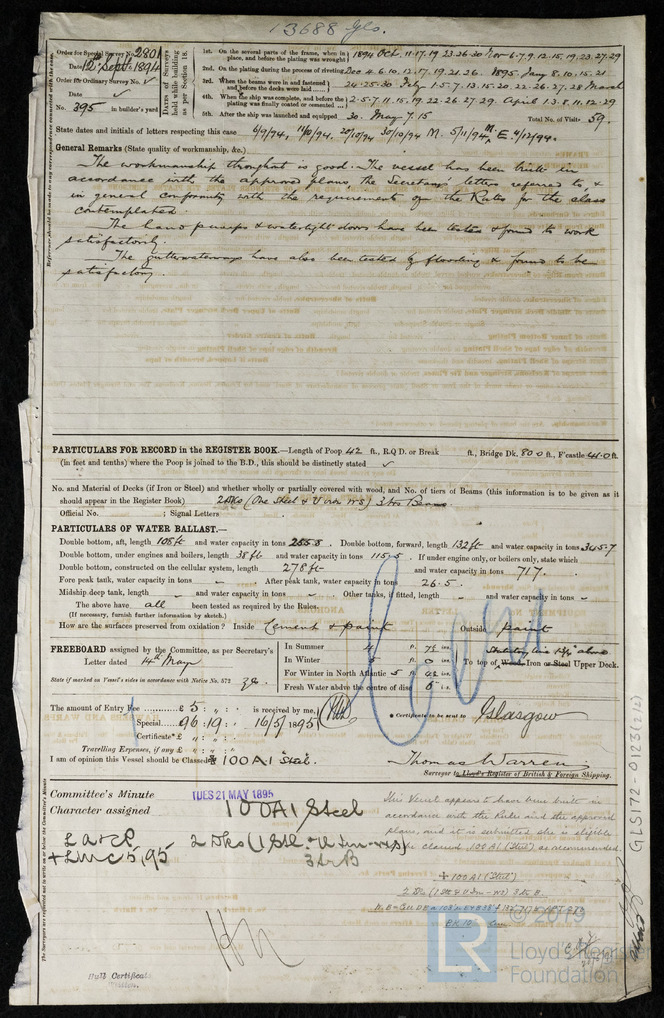 13688 Gls.
Order for Special Survey No. 2801
Date 12th Sept 1894
Order for Ordinary Survey No. ✓
Date ✓
No. 395 in builder's yard.
DATES of Surveys held while building as per Section 18.
1st. On the several parts of the frame, when in place, and before the plating was wrought 1894 Oct. 11.17.19.23.26.30 Nov 6.7.9.12.15.19.23.27.29
2nd. On the plating during the process of riveting Dec 4.6.10.12.17.19.21.26. 1895 Jany 8.10.15.21
3rd. When the beams were in and fastened and before the decks were laid 24.25.30 Feby 1.5.7.13.15.20.22.26.27.28 March
4th. When the ship was complete, and before the plating was finally coated or cemented 2.5.7.11.15.19.22.26.27.29 April 1.3.8.11.12.29
5th. After the ship was launched and equipped 30. May 7.15
Total No. of Visits 59.
State dates and initials of letters respecting this case 6/9/94, 11/10/94, 20/10/94 30/10/94 M. 5/11/94 M. E. 4/12/94.
General Remarks (State quality of workmanship, &c.)
The workmanship throughout is good. The vessel has been built in
accordance with the approved plans, the Secretary's letters referred to, &
in general conformity with the requirements of the Rules for the class
contemplated.
The hand pumps & watertight doors have been tested & found to work
satisfactorily.
The gutterwaterways have also been tested by flooding & found to be
satisfactory.
PARTICULARS FOR RECORD in the REGISTER BOOK.—Length of Poop 42 ft., R.Q.D. or Break ft., Bridge Dk. 80.0 ft., F'castle 41.0 ft.
(in feet and tenths) where the Poop is joined to the B.D., this should be distinctly stated ✓
No. and Material of Decks (if Iron or Steel) and whether wholly or partially covered with wood, and No. of tiers of Beams (this information is to be given as it
should appear in the Register Book) 2 Dks (One Steel & U Iron WS) 3 trs Beams.
Official No. ; Signal Letters
PARTICULARS OF WATER BALLAST.—
Double bottom, aft, length 108 ft and water capacity in tons 255.8. Double bottom, forward, length 132 ft and water capacity in tons 345.7
Double bottom, under engines and boilers, length 38 ft and water capacity in tons 115.5. If under engine only, or boilers only, state which
Double bottom, constructed on the cellular system, length 278 ft and water capacity in tons 717.
Fore peak tank, water capacity in tons - . After peak tank, water capacity in tons 26.5.
Midship deep tank, length - and water capacity in tons - . Other tanks, if fitted, length - and water capacity in tons -
The above have all been tested as required by the Rules.
(If necessary, furnish further information by sketch.)
How are the surfaces preserved from oxidation? Inside Cement & paint Outside paint
FREEBOARD assigned by the Committee, as per Secretary's
Letter dated 14th May
State if marked on Vessel's sides in accordance with Notice No. 572
In Summer 4 ft. 7½ in.
In Winter 5 ft. 0 in. To top of Wood Iron or Steel Upper Deck.
For Winter in North Atlantic 5 ft.
Fresh Water above the centre of disc 6 in.
The amount of Entry Fee £ 5 : „ : is received by me,
Special 96 : 19 : 16/5/1895
Certificate* £ „ : „ :
* Certificate to be sent to Glasgow
Travelling Expenses, if any £
I am of opinion this Vessel should be Classed ✠ 100 A1 "Steel".
Thomas Warren
Surveyor to Lloyd's Register of British & Foreign Shipping.
Committee's Minute TUES 21 MAY 1895
Character assigned 100A1 Steel
+ LMC 5,95
This Vessel appears to have been built in
accordance with the Rules and the approved
plans, and it is submitted she is eligible
to be classed 100 A1 (Steel) as recommended.
✠ 100 A1 (Steel)
GLS172-0123(2/2)
LR
© 2019
Lloyd's Register
Foundation
Hull Certificate
Written.
The Surveyors are requested not to write on or below the Committee's Minute